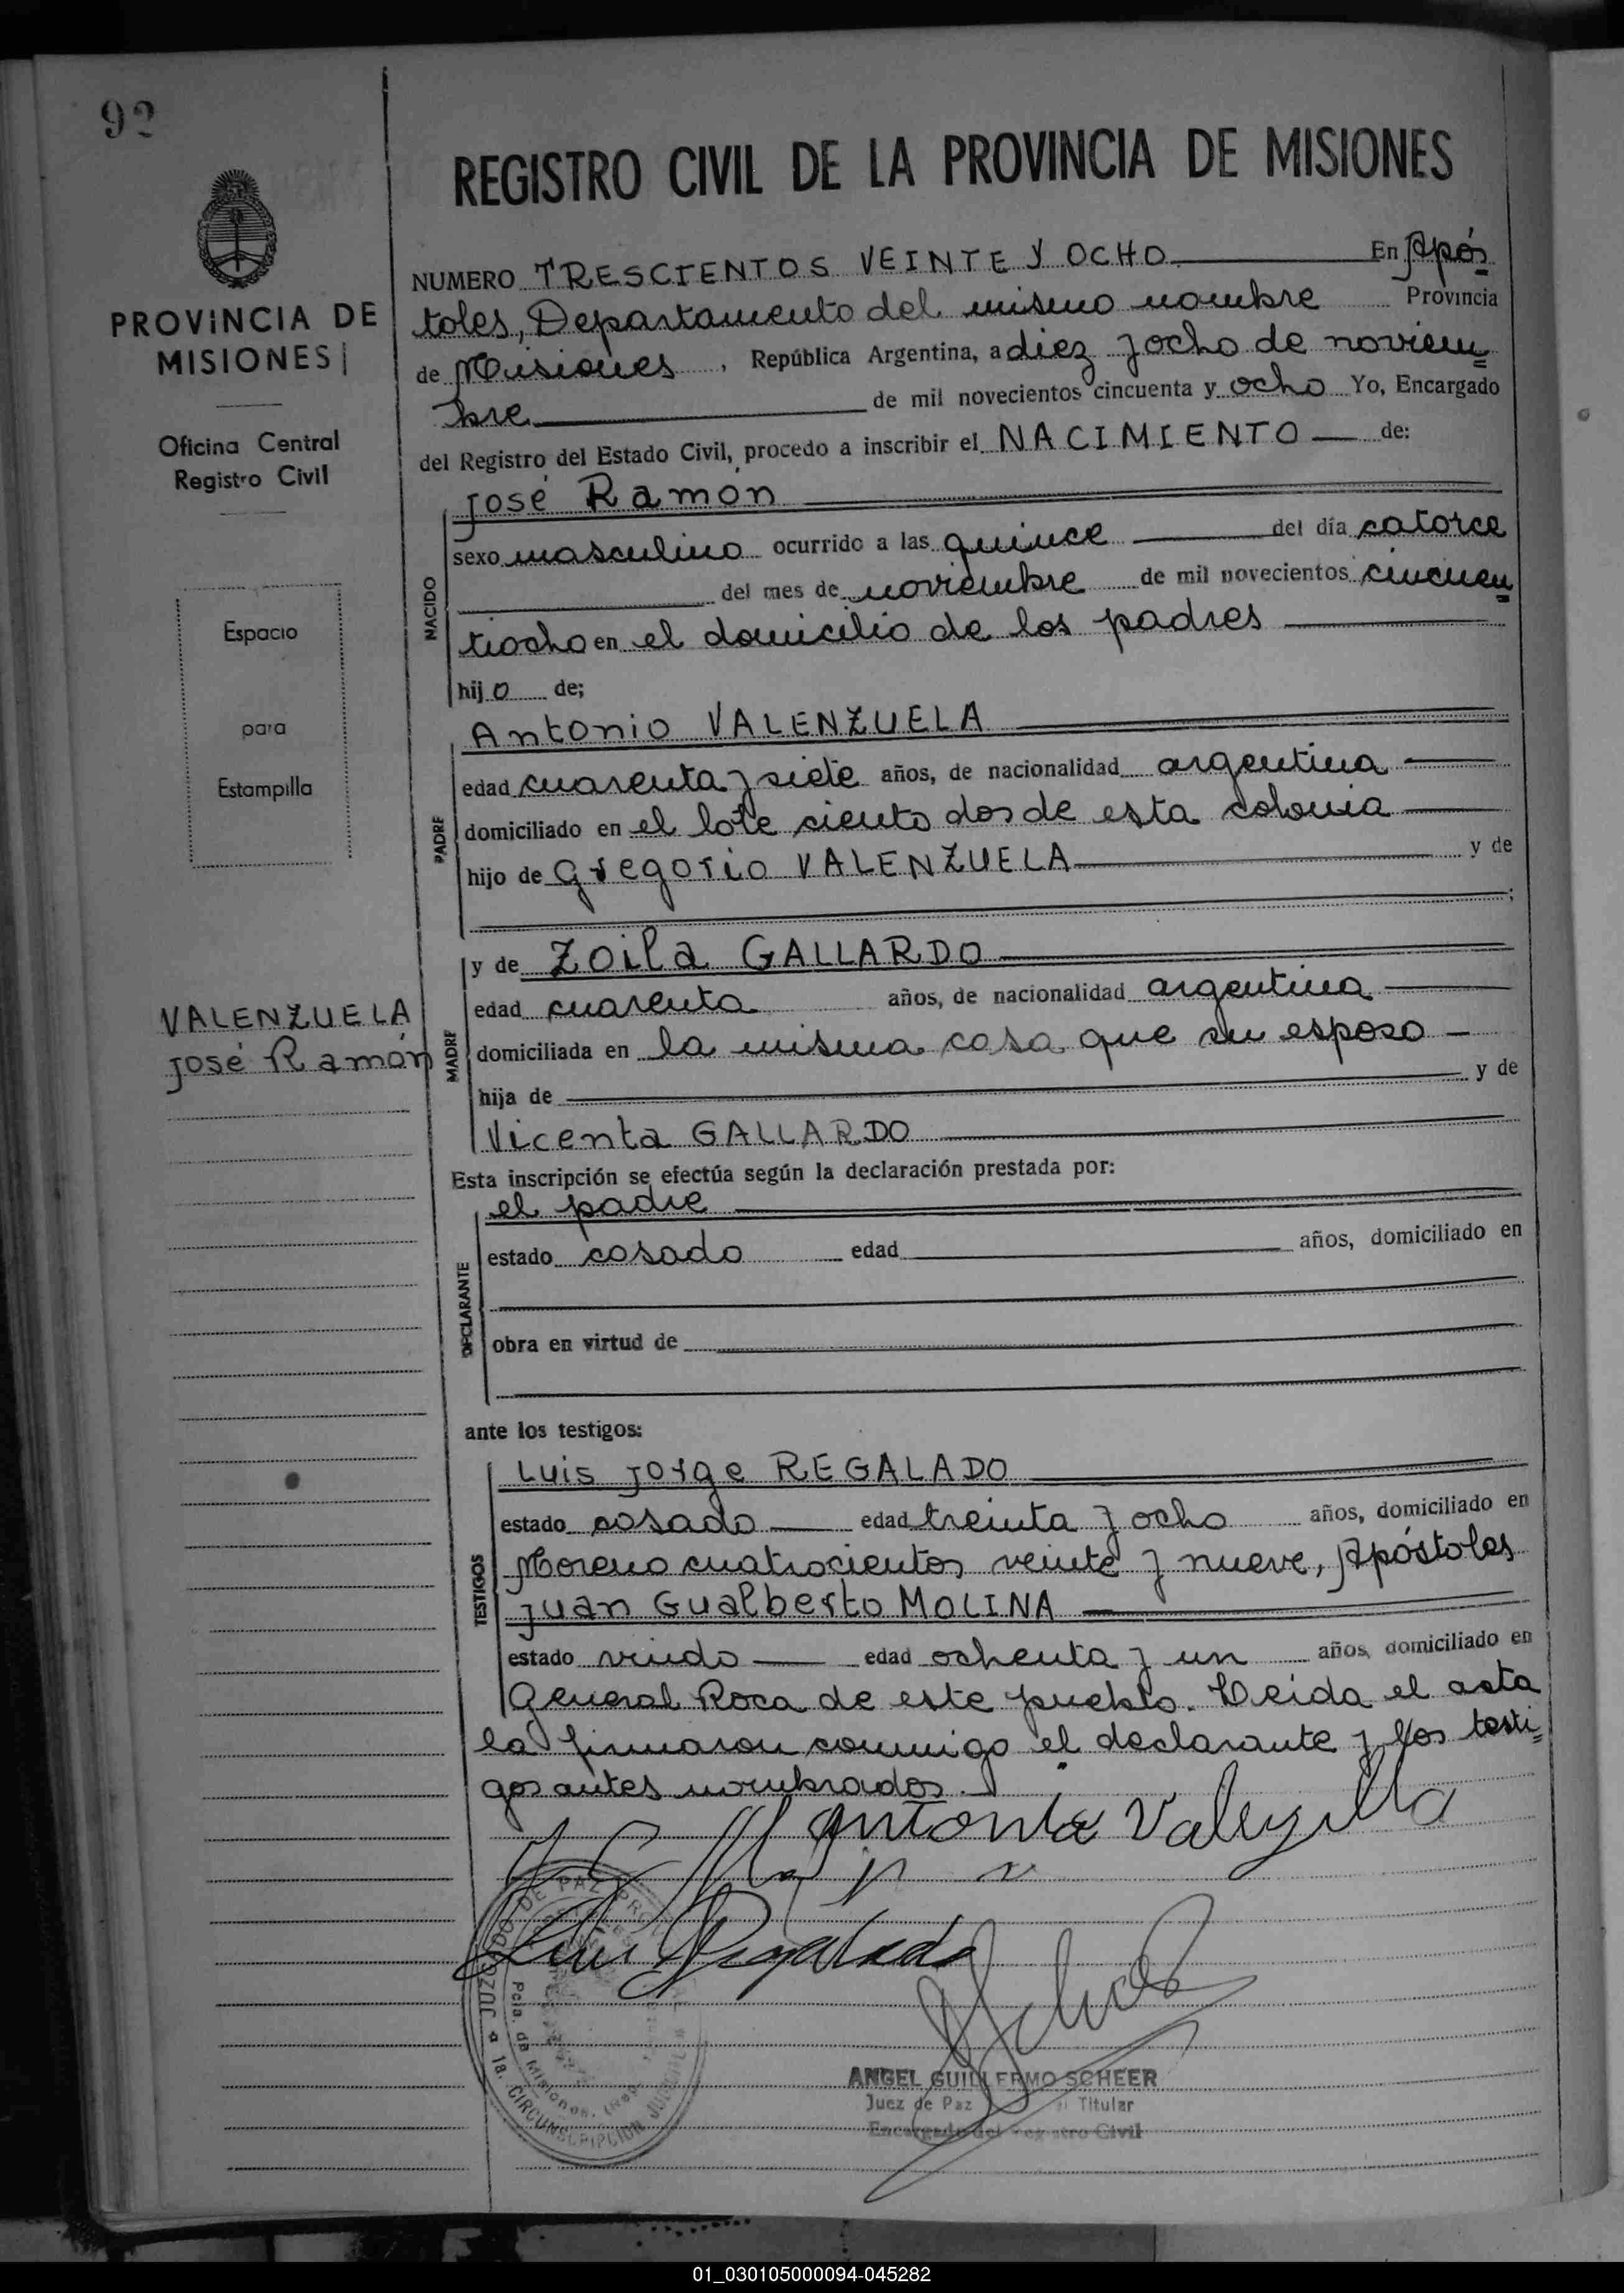 92
REGISTRO CIVIL DE LA PROVINCIA DE MISIONES
PROVINCIA DE
MISIONES
Oficina Central
Registro Civil
Espacio
para
Estampilla
VALENZUELA
José Ramón
NUMERO TRESCIENTOS VEINTE Y OCHO En Após
toles, Departamento del mismo nombre Provincia
de Misiones, República Argentina, a diez y ocho de noviem
bre de mil novecientos cincuenta y ocho Yo, Encargado
del Registro del Estado Civil, procedo a inscribir el NACIMIENTO de:
José Ramón
NACIDO
sexo masculino ocurrido a las quince del día catorce
del mes de noviembre de mil novecientos cincuen
tiocho en el domicilio de los padres
hijo de;
Antonio VALENZUELA
PADRE
edad cuarenta y siete años, de nacionalidad argentina
domiciliado en el lote ciento dos de esta colonia
hijo de Gregorio VALENZUELA y de
;
y de Zoila GALLARDO
MADRE
edad cuarenta años, de nacionalidad argentina
domiciliada en la misma casa que su esposo
hija de y de
Vicenta GALLARDO
Esta inscripción se efectúa según la declaración prestada por:
el padre
DECLARANTE
estado casado edad años, domiciliado en
obra en virtud de
ante los testigos:
Luis Jorge REGALADO
TESTIGOS
estado casado edad treinta y ocho años, domiciliado en
Moreno cuatrocientos veinte y nueve, Apóstoles
Juan Gualberto MOLINA
estado viudo edad ochenta y un años, domiciliado en
General Roca de este pueblo. Leída el acta
la firmaron conmigo el declarante y los testi=
gos antes nombrados.
Luis Regalado
JUZGADO DE PAZ
Pcia. de Misiones.
1a. CIRCUNSCRIPCION JUDICIAL
ANGEL GUILLERMO SCHEER
Juez de Paz Titular
Encargado del Registro Civil
01_030105000094-045282